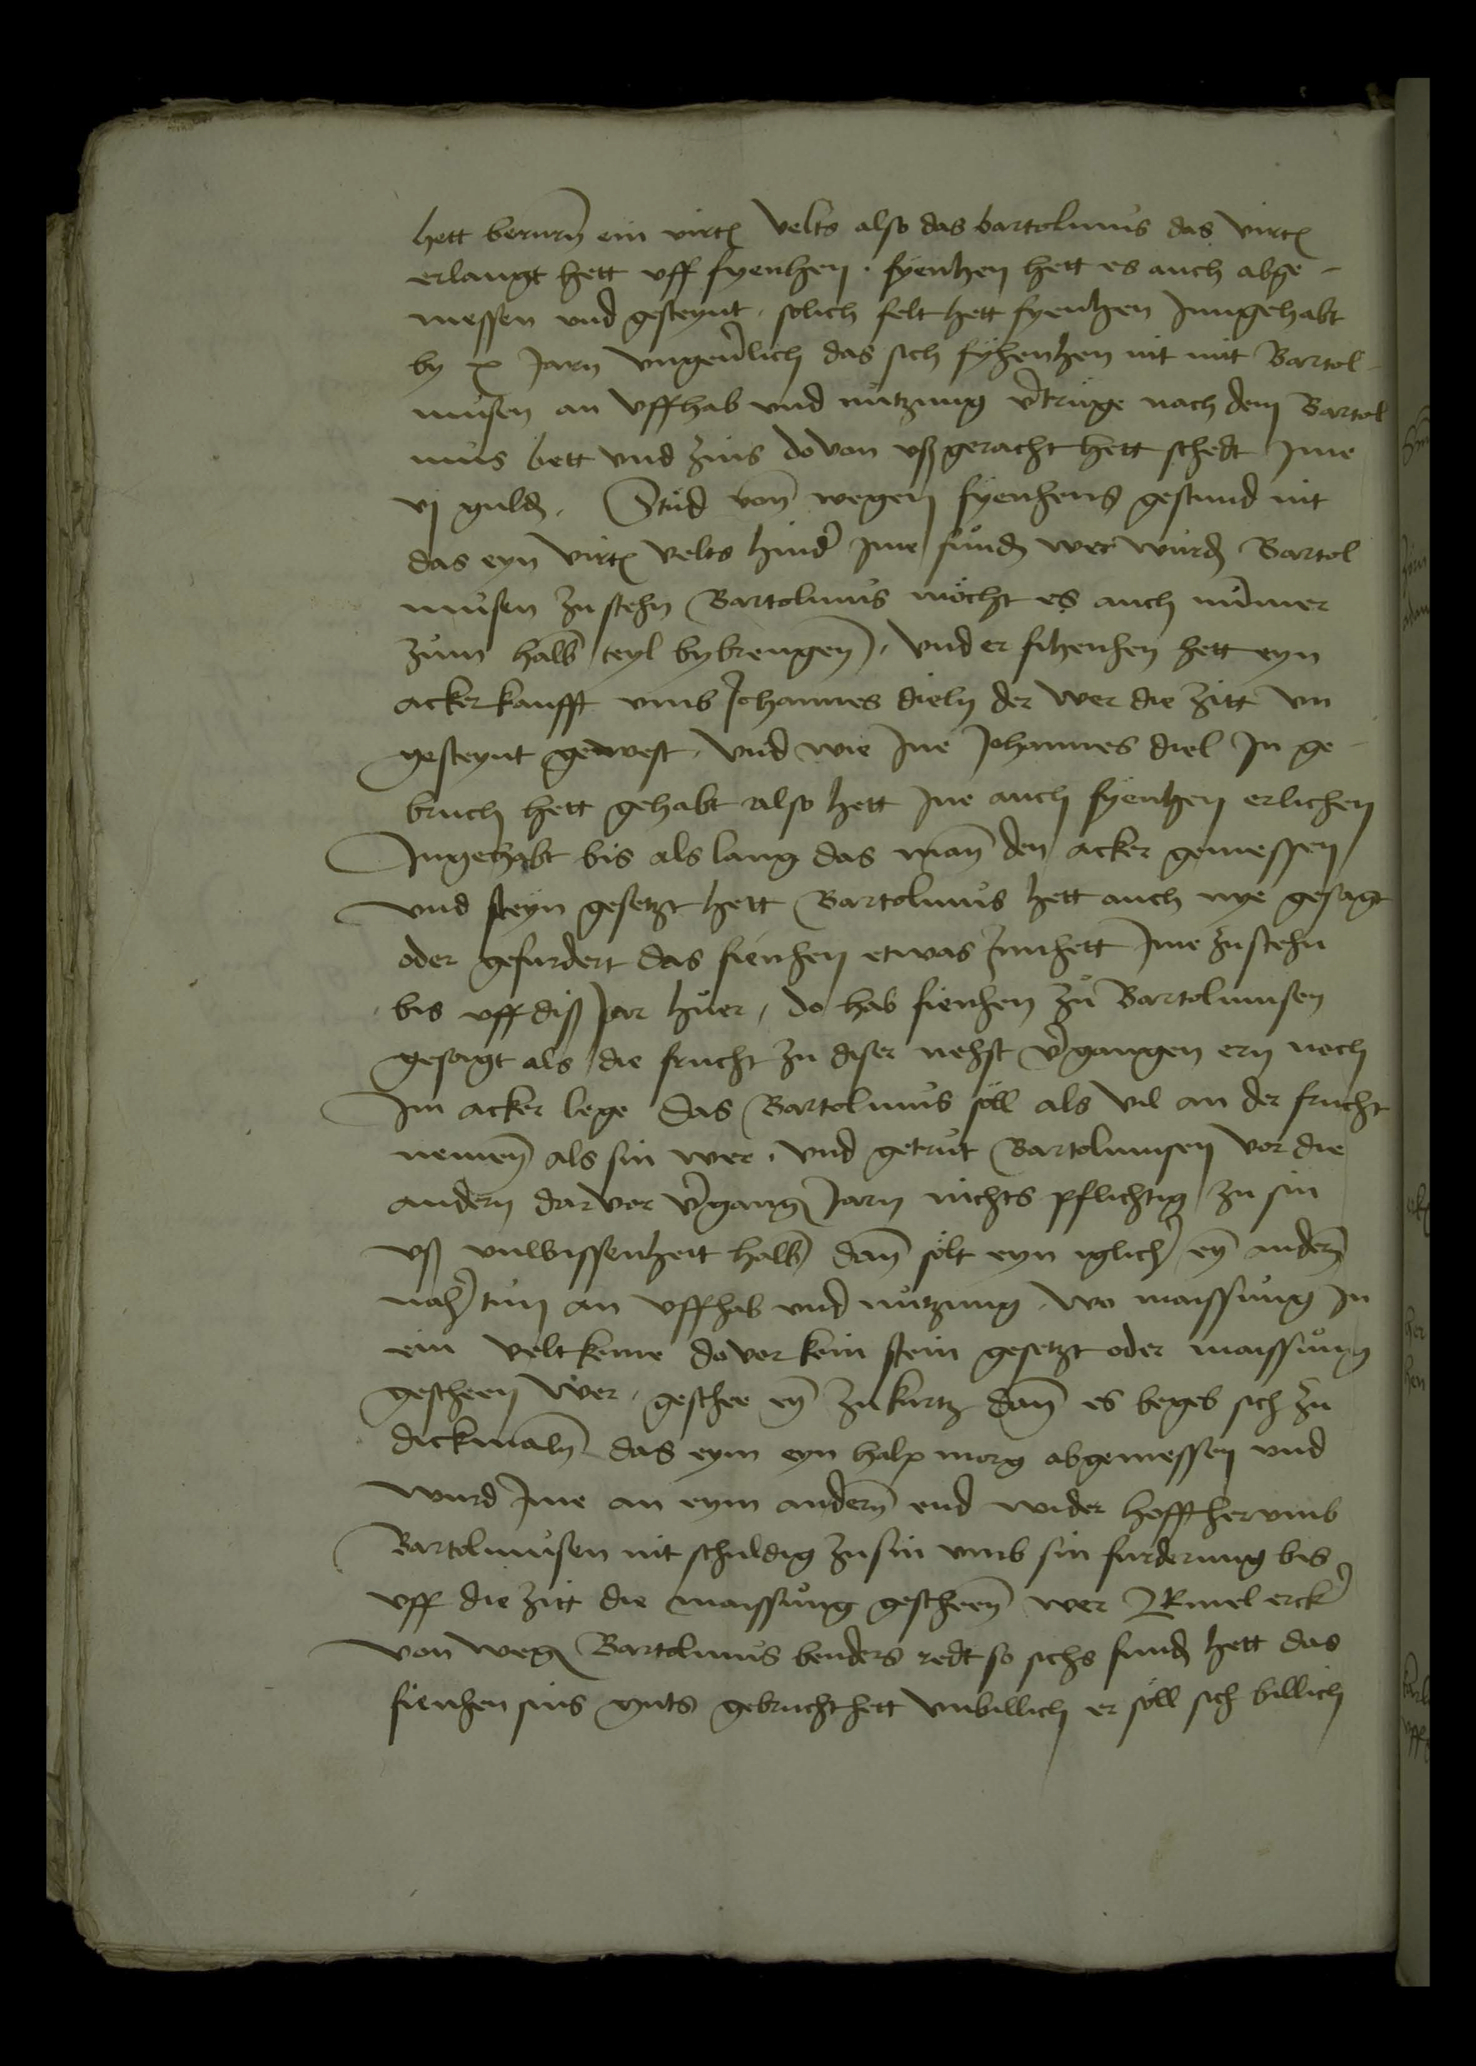 hett berurn ein virt velts also das bartolmus das virt
erlangt hett uff fyenhen . fyenhen hett es auch abge-
messen und gesteynt . solich felt hett fyenhen Inngehabt
by x Jarn ungeverlich das sich fyhenhen nit mit Bartol-
musen an uffhab und nutzung vertruge nach dem Bartol
mus bett und zins dovon ußgeracht hett schedt Ime
vj guld . Stud von wegen fyenhens gestund nit
das eyn virt velts hinder Ime fund wer wurd Bartol
musen zu stehn Bartolmus mocht es auch nummer
zum halb teyl bybrengen . und er fihenhen hett eyn
acker kaufft umb Johannes dieln der wer die zitt un
gesteynt gewest . und wie Ine Johannes diel In ge-
bruch hett gehabt also hett Ine auch fyenhen erlichen
Ingehabt bis als lang das man den acker gemessen
und steyn gesetzt hett Bartolmus hett auch nye gesagt
oder gefurdert das fienhen etwas Innhett Ime zustehn
bis uff diß Jar huer , do hab fienhen zu Bartolmusen
gesagt als die frucht zu diser nehst vergangen ern noch
Im acker lege das Bartolmus soll als vil an der frucht
nemen als sin wer . und getrut Bartolmusen vor die
andern darvor vergang Jarn nichts pflichtig zu sin
uß unwissenheit halb dan solt eyn iglicher eyn andern
naher tun an uffhab und nutzung . wo maissung In
ein velt keme dovor kein stein gesetzt oder maissung
gescheen wer . geschee eyn zu kurtz dan es begeb sich zu
dickmaln das eym eyn halp morg abgemessen und
wurd Ime an eym andern end wider hofft herumb
Bartolmusen nit schuldig zusin umb sin furderung bis
uff die zitt die maissung gescheen wer Emel erck
von weg Bartolmus benders redt so sichs fund hett das
fienhen sins guts gebrucht hett unbillich er soll sich billich